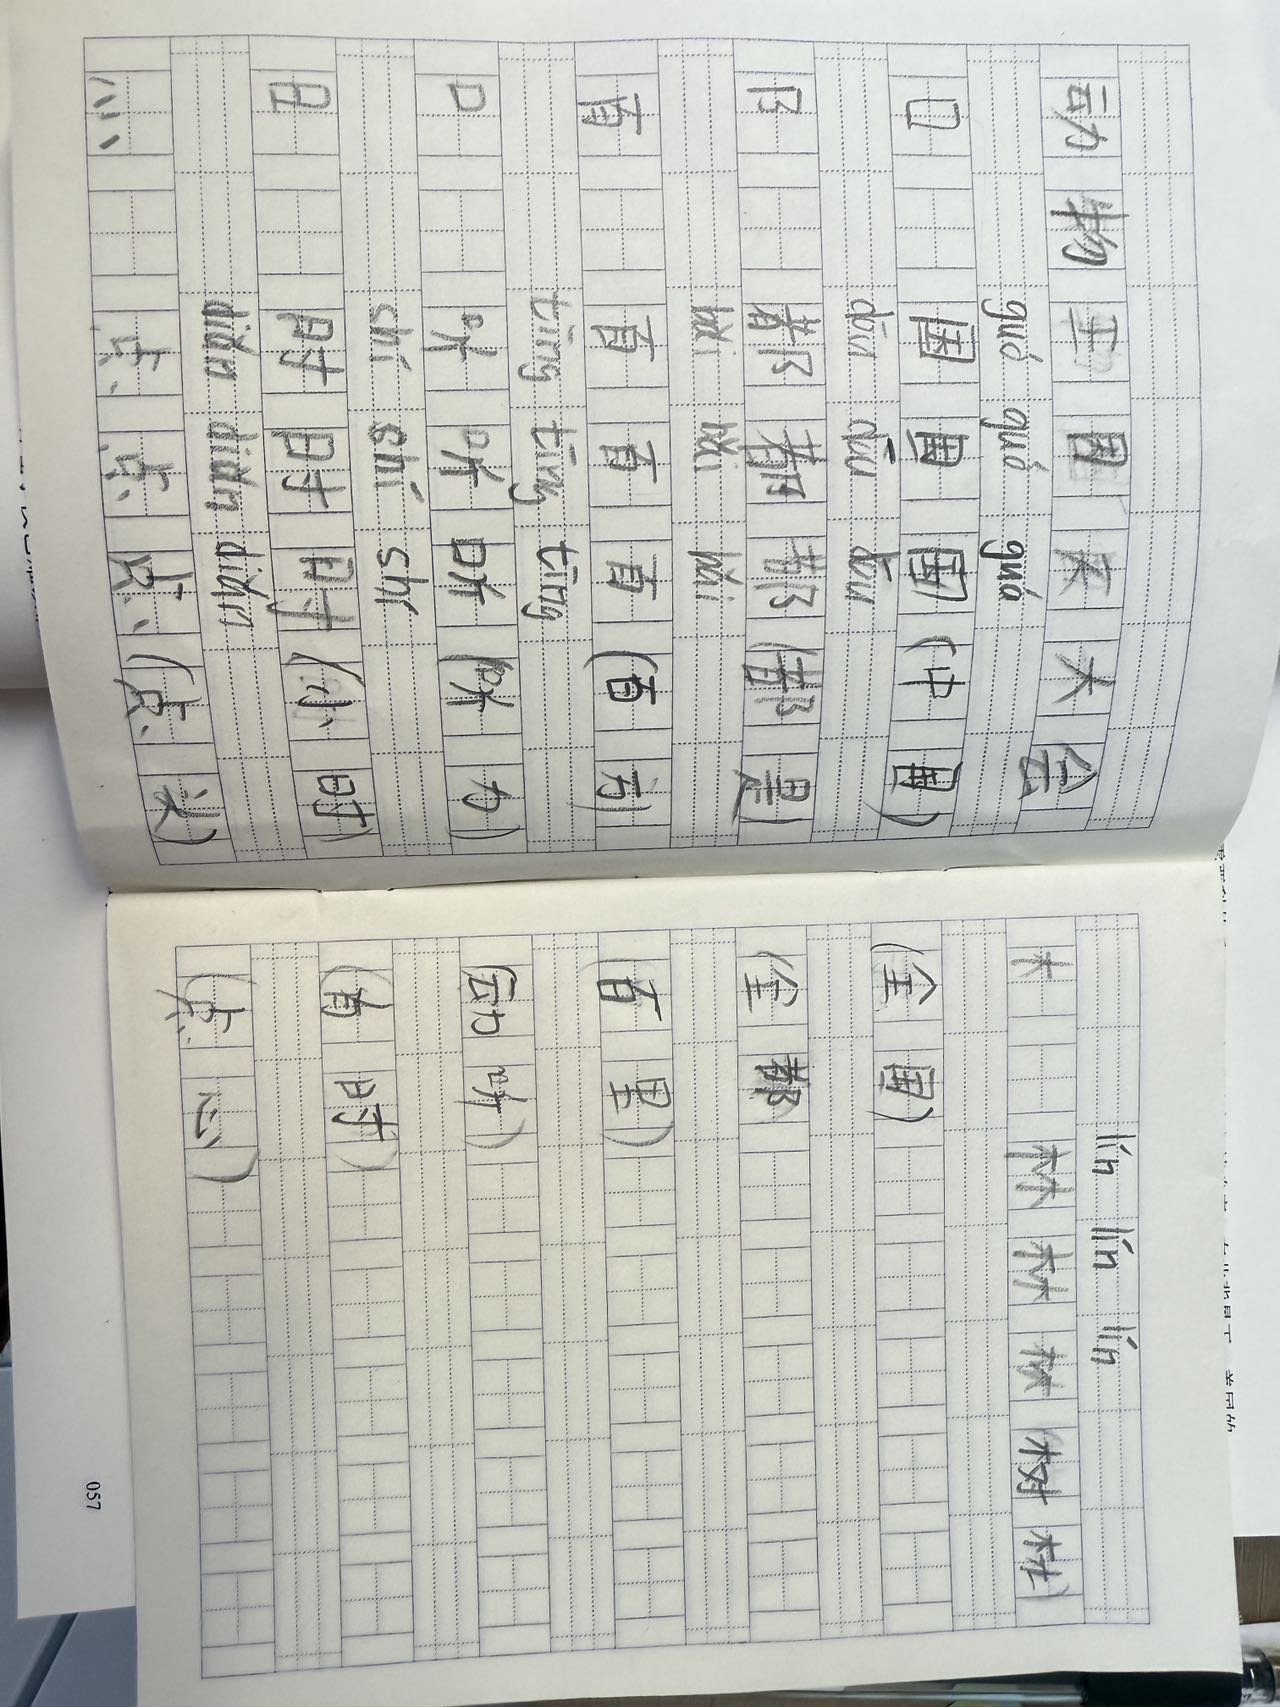 动物王国开大会
guó guó guó
囗 国国国(中国)
dōu dōu dōu
阝 都都都(都是)
bǎi bǎi bǎi
百 百百百(百万)
tīng tīng tīng
口 听听听(听力)
shí shí shí
日 时时时(小时)
diǎn diǎn diǎn
灬 点点点(点火)
lín lín lín
木 林林林(树林)
(全国)
(全都
(百里)
(动听)
(有时)
(点心)
057